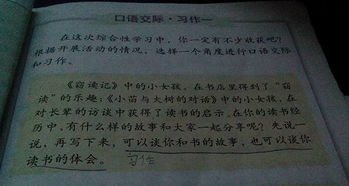 口语交际·习作一
在这次综合性学习中，你一定有不少收获吧？
根据开展活动的情况，选择一个角度进行口语交际
和习作。
《窃读记》中的小女孩，在书店里得到了“窃
读”的乐趣；《小苗与大树的对话》中的小女孩，在
对长辈的访谈中获得了读书的启示。在你的读书经
历中，有什么样的故事和大家一起分享呢？先说一
说，再写下来，可以谈你和书的故事，也可以谈你
读书的体会。
习作